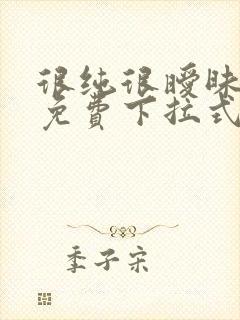 很纯很暧昧
免费下拉式
季子宋